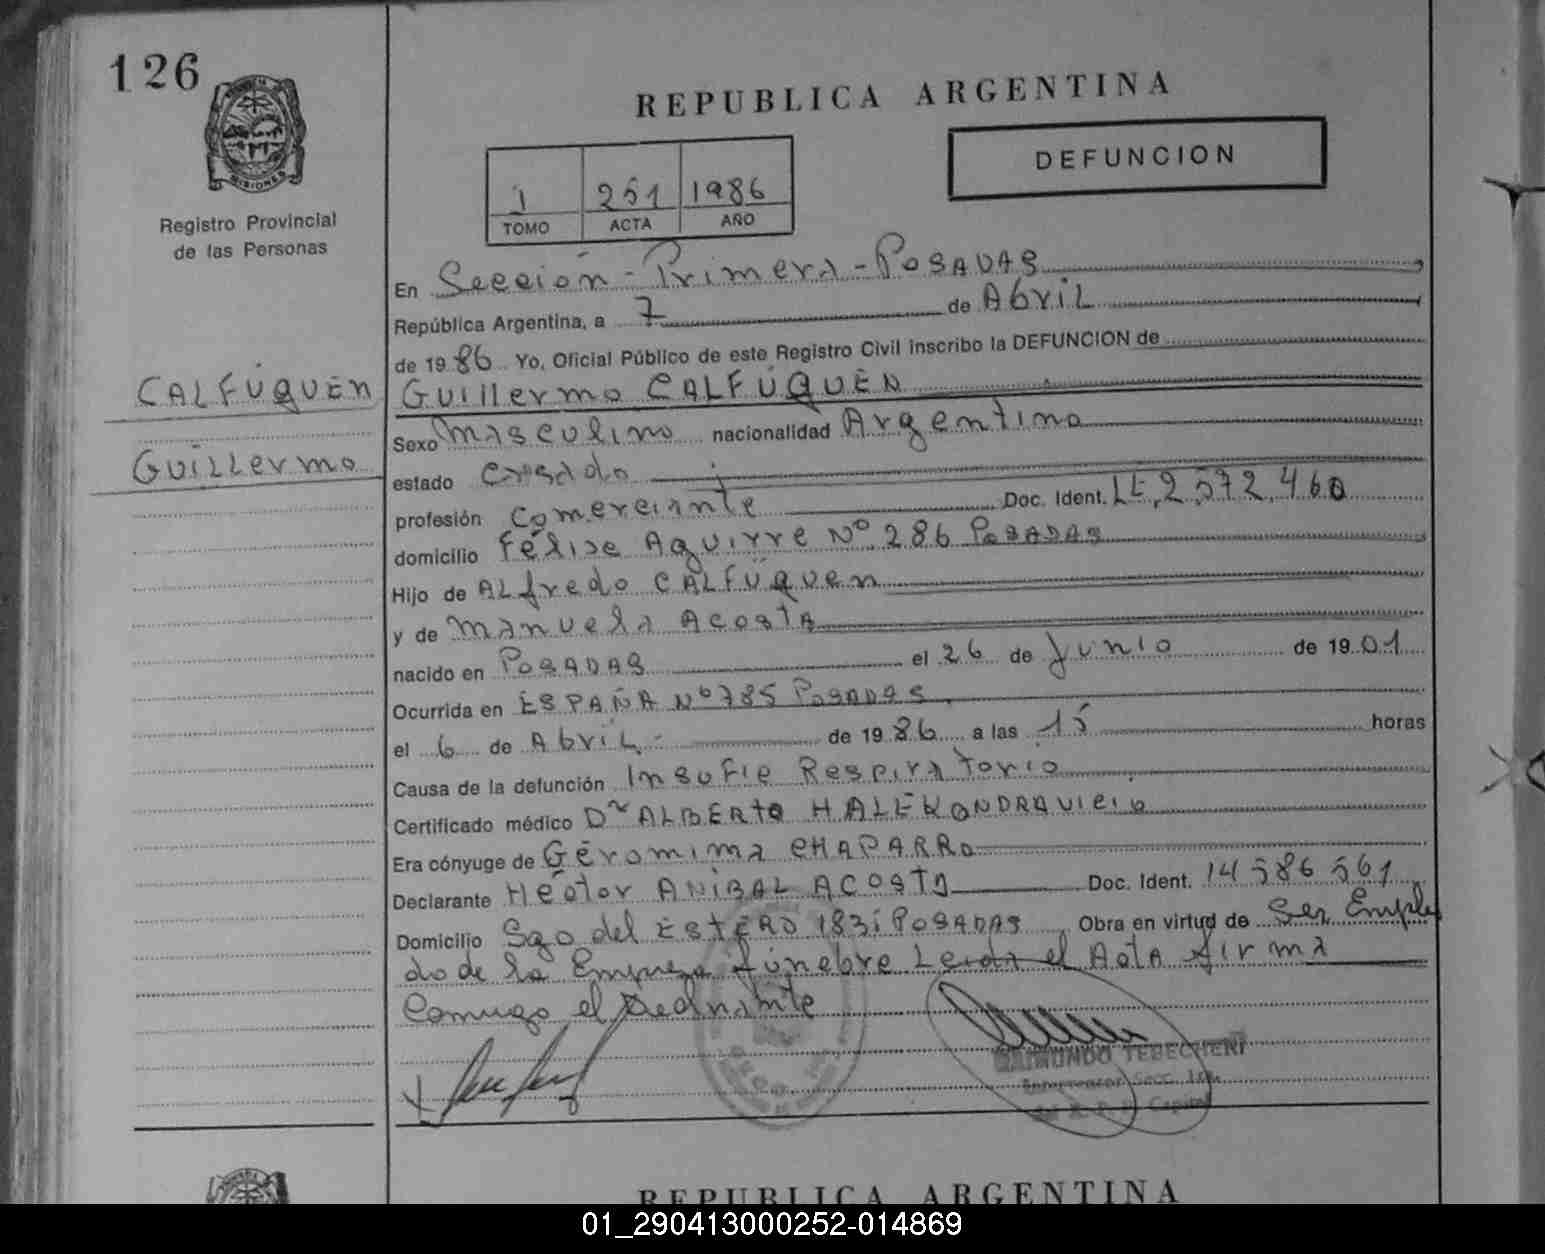 126
MISIONES
Registro Provincial
de las Personas
REPUBLICA ARGENTINA
DEFUNCION
1 251 1986
TOMO ACTA AÑO
En Sección - Primera - POSADAS
República Argentina, a 7 de Abril
de 19 86 Yo, Oficial Público de este Registro Civil inscribo la DEFUNCION de
CALFÚQUÉN
Guillermo CALFÚQUÉN
Sexo Masculino nacionalidad Argentino
Guillermo
estado Casado
profesión Comerciante Doc. Ident. LE, 2,572,460
domicilio Félix Aguirre Nº 286 POSADAS
Hijo de Alfredo CALFÚQUEN
y de Manuela Acosta
nacido en POSADAS el 26 de Junio de 19 01
Ocurrida en ESPAÑA Nº 785 POSADAS
el 6 de Abril - de 19 86 a las 15 horas
Causa de la defunción Insufic Respiratorio
Certificado médico Dr ALBERTO HALEKONDRAVICIO
Era cónyuge de Géromima CHAPARRO
Declarante Héctor ANIBAL ACOSTA Doc. Ident. 14 586 561
Domicilio Sgo del ESTERO 1831 POSADAS Obra en virtud de Ser Emplea
do de la Empresa fúnebre Leida el Acta firma
Comigo el
RAIMUNDO TEBECHERI
Secc. 1ra
Capital
REPUBLICA ARGENTINA
01_290413000252-014869